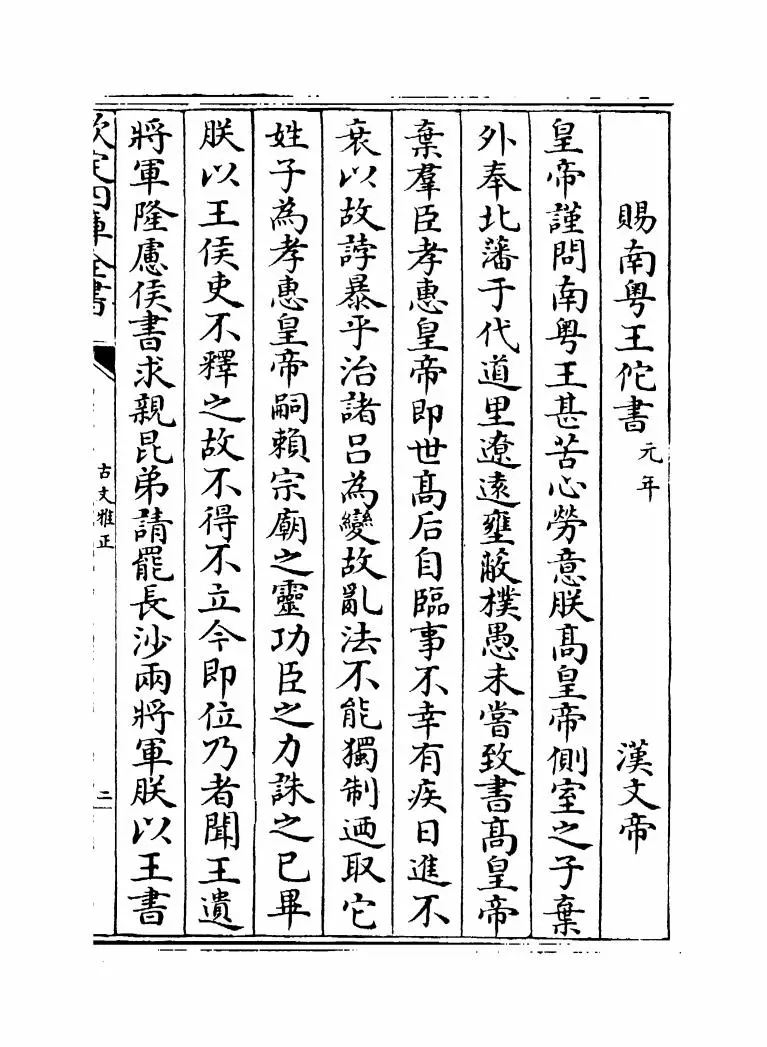 賜南粤王佗書元年 漢文帝
皇帝謹問南粤王甚苦心勞意朕髙皇帝側室之子棄
外奉北藩于代道里遼逺壅蔽樸愚未嘗致書髙皇帝
棄羣臣孝惠皇帝即世髙后自臨事不幸有疾日進不
衰以故誖暴乎治諸吕為變故亂法不能獨制迺取它
姓子為孝惠皇帝嗣賴宗廟之靈功臣之力誅之已畢
朕以王侯吏不釋之故不得不立今即位乃者聞王遺
將軍隆慮侯書求親昆弟請罷長沙兩將軍朕以王書
欽定四庫全書
古文雅正
二